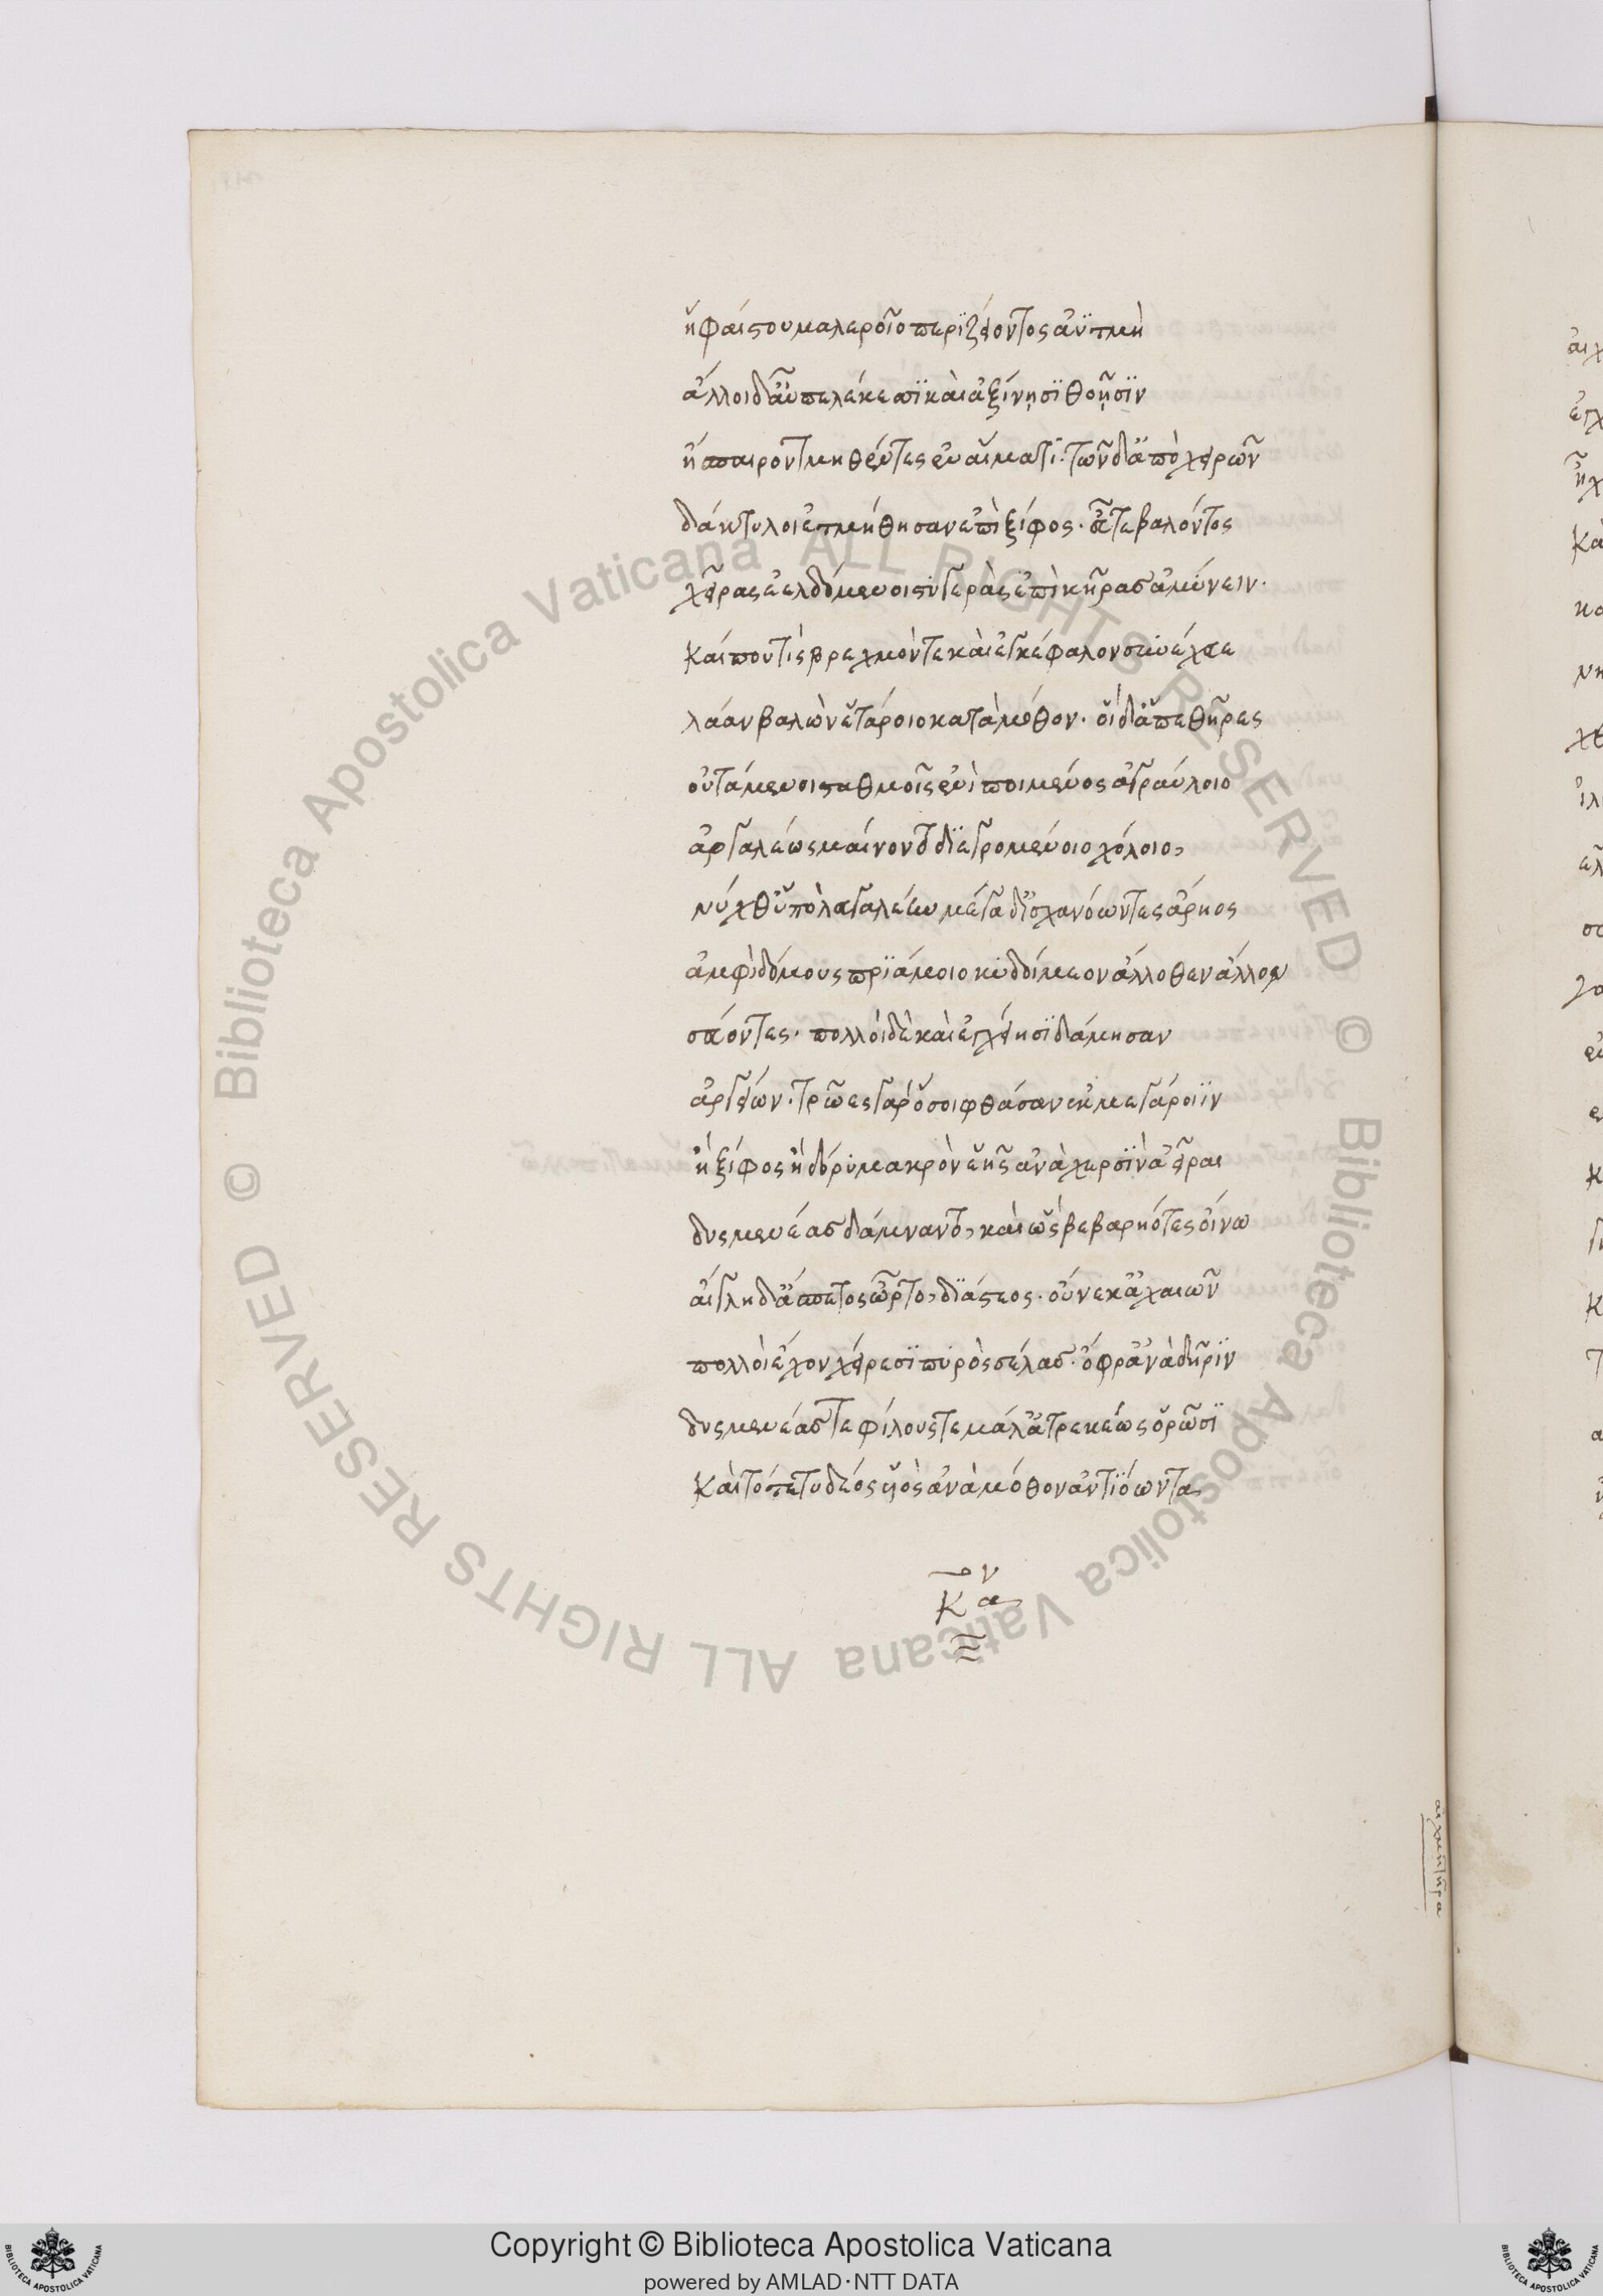 ἡφαίστου μαλεροῖο περϊζείοντος ἀϋτμὴ
ἄλλοι δ᾽ αὖ πελέκεσϊ καὶ ἀξίνῃσϊ θοῇσϊν
ἤσπαιρον τμηθέντες ἐν αἵματϊ· τῶν δ᾽ ἀπὸ χειρῶν
δάκτυλοι ἐτμήθησαν ἐπὶ ξίφος· εὖτε βαλόντος
χεῖρας ἐελδόμενοι στυγερὰς ἐπὶ κῆρας ἀμύνειν·
Καί που τὶς βρεχμόν τε καὶ ἐγκέφαλον συνέχευε
λάαν βαλὼν ἑτάροιο κατὰ μόθον· οἵ δ᾽ ἅτε θῆρες
οὐτάμενοι σταθμοῖς ἐνὶ ποιμένος ἀγραύλοιο
ἀργαλέως μαίνοντο δϊεγρομένοιο χόλοιο,
νύχθ᾽ ὕπὸ λαγαλέων μέγα δ᾽ ἰσχανόωντες ἄρηος
ἀμφὶ δόμους πρϊάμοιο κυδοίμεον ἄλλοθεν ἄλλον
σεύοντες· πολλοὶ δὲ καὶ ἐγχείησϊ δάμησαν
ἀργείων· τρῶες γὰρ ὅσοι φθάσαν ἐκ μεγάροιϊν
ἢ ξίφος ἢ δόρυ μακρὸν ἑῆς ἀνὰ χερσϊν ἀεῖραι
δυσμενέας δάμναντο, καὶ ὣς βεβαρηότες οἴνω
αἴγλη δ᾽ ἄσπετος ὦρτο, δϊ᾽ ἄστεος· οὕνεκ᾽ ἀχαιῶν
πολλοὶ ἔχον χείρεσϊ πυρὸς σέλας· ὄφρ᾽ ἀνὰ δῆρϊν
δυσμενέας τε φίλους τε μάλ᾽ ἀτρεκέως ὁρῶσϊ
Καὶ τότε τυδέος υἱὸς ἀνὰ μόθον ἀντϊόωντα
αἰχμητῆρα
Copyright © Biblioteca Apostolica Vaticana
powered by AMLAD·NTT DATA